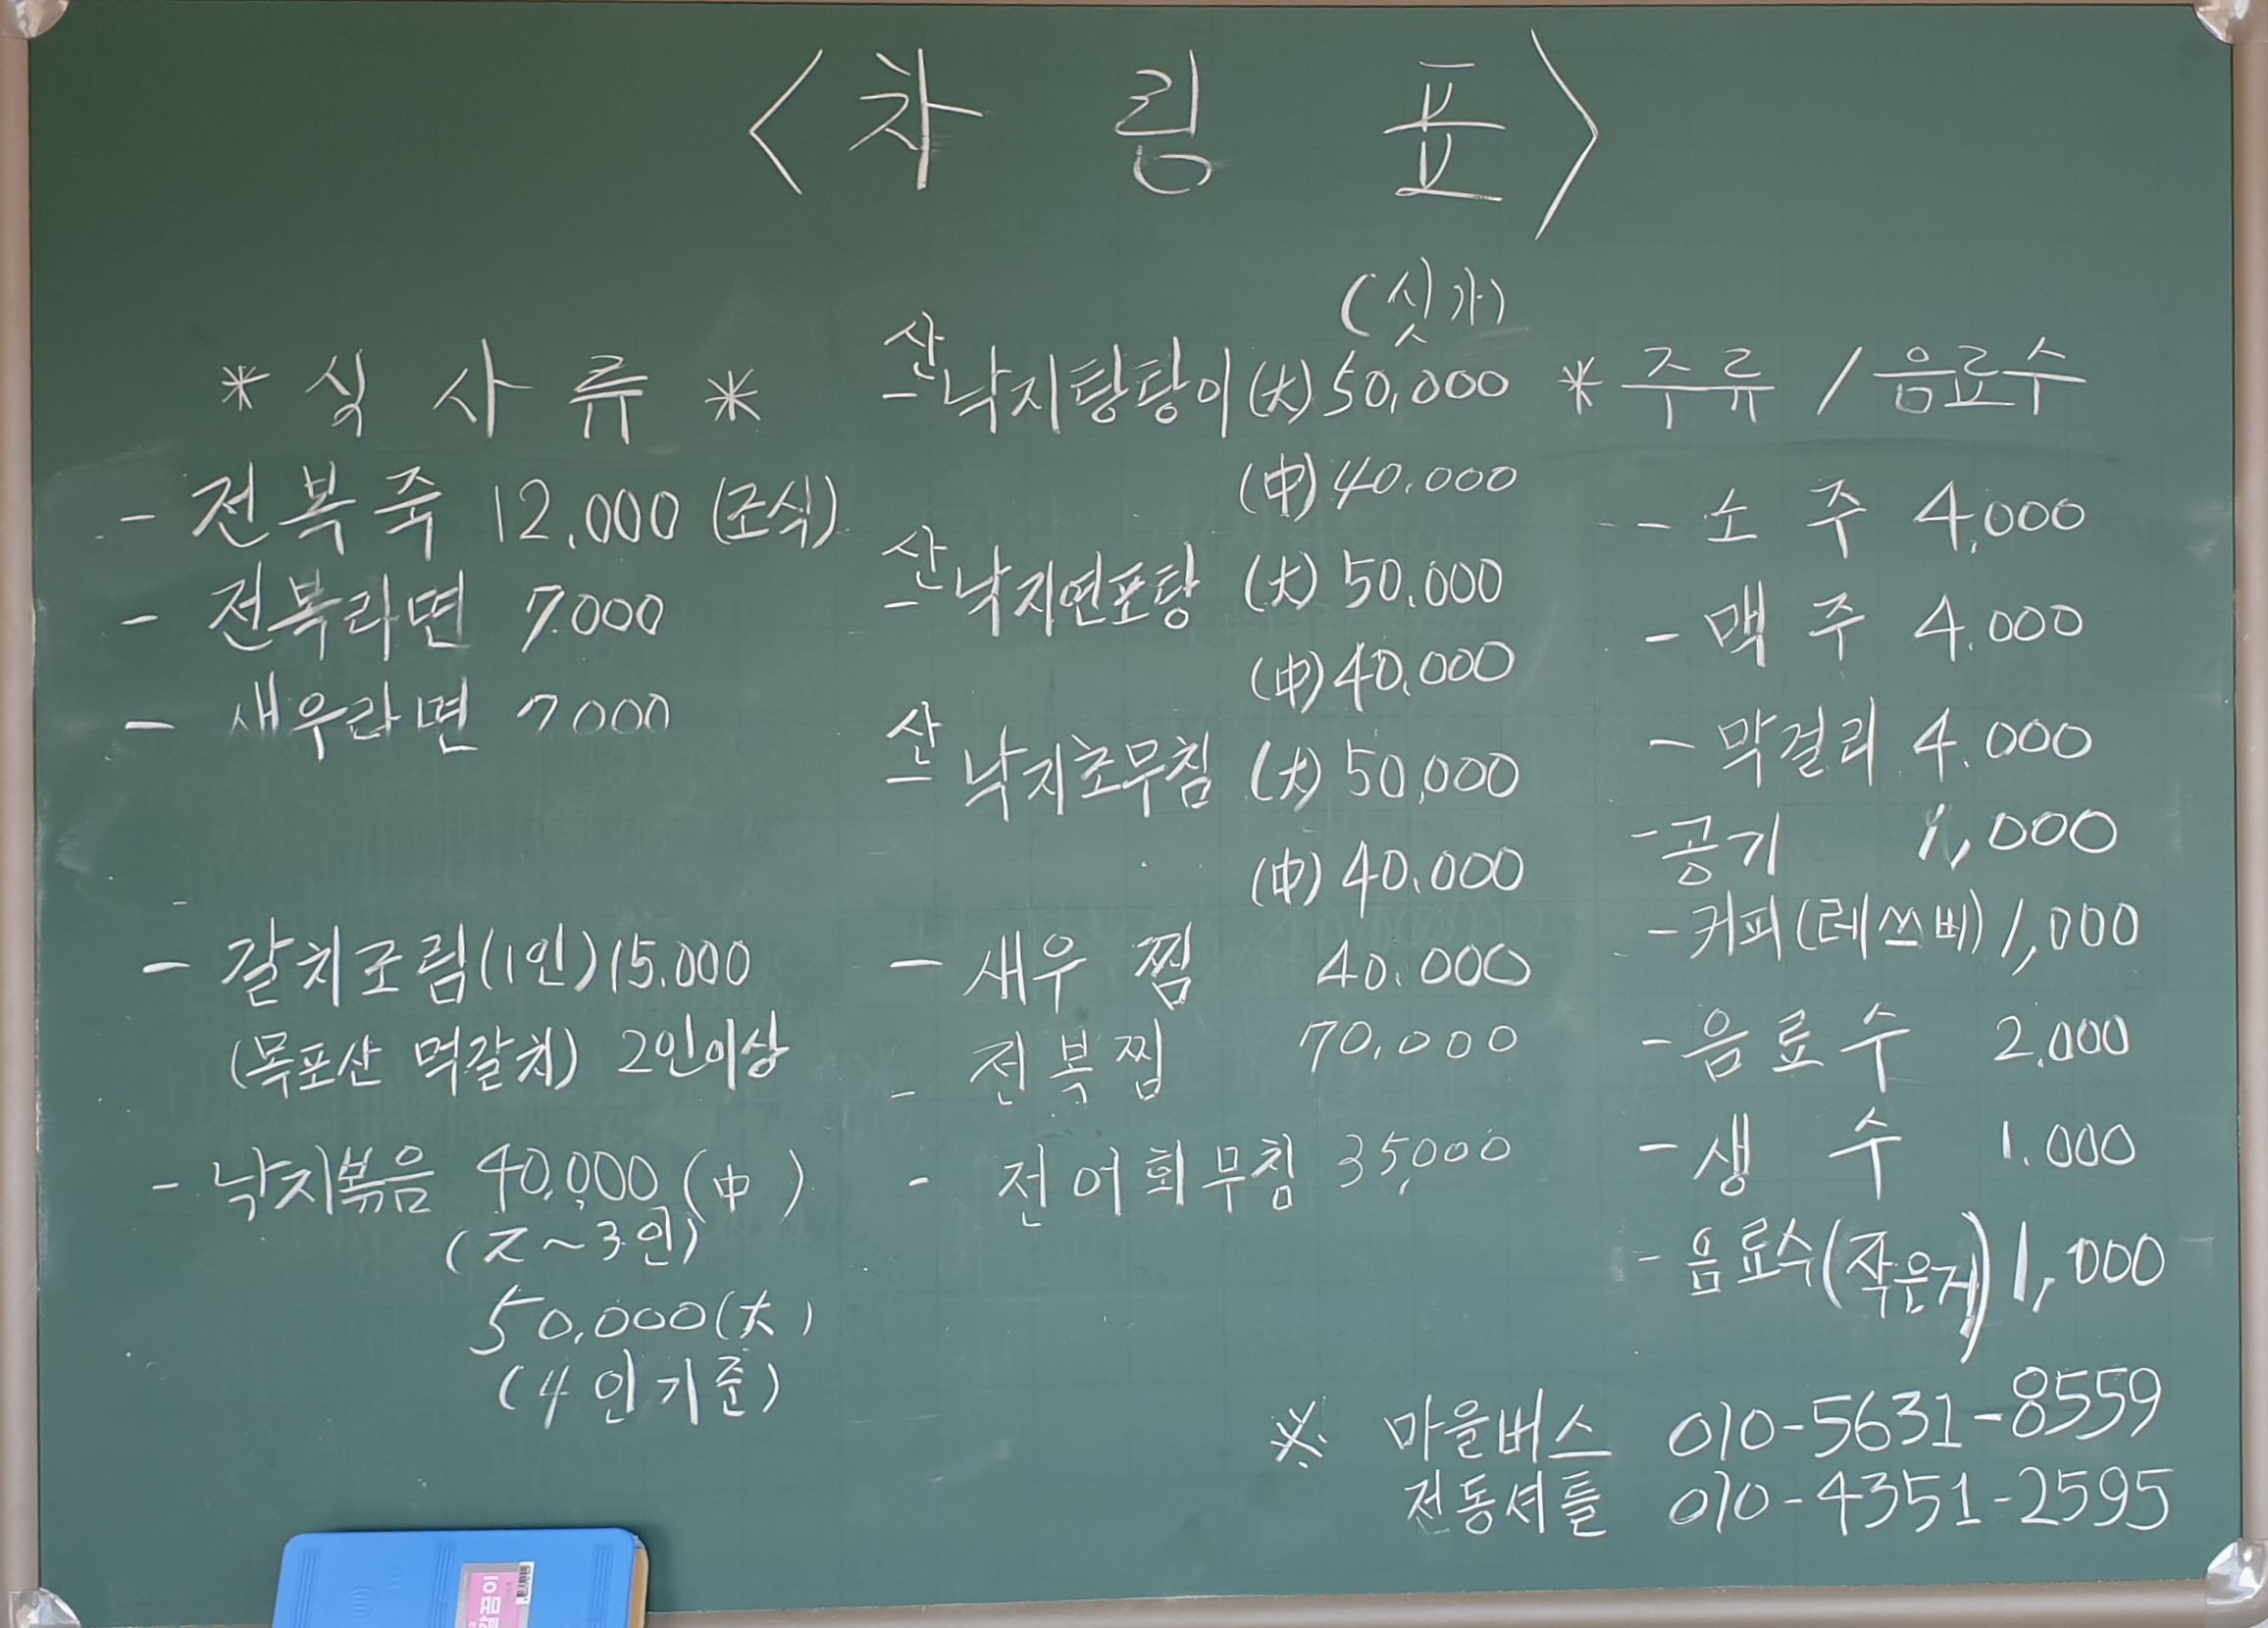 <차림표>
* 식사류 *
- 전복죽 12,000 (조식)
- 전복라면 7.000
- 새우라면 7000
- 갈치조림(1인) 15.000
(목포산 먹갈치) 2인이상
- 낙지볶음 40,000 (中)
(2~3인)
50,000(大)
(4인기준)
(싯가)
- 산낙지탕탕이 (大) 50,000
(中) 40.000
- 산낙지연포탕 (大) 50.000
(中) 40.000
- 산낙지초무침 (大) 50,000
(中) 40.000
- 새우찜 40.000
- 전복찜 70,000
- 전어회무침 35,000
* 주류 / 음료수
- 소주 4,000
- 맥주 4.000
- 막걸리 4.000
- 공기 1,000
- 커피(레쓰비) 1,000
- 음료수 2.000
- 생수 1.000
- 음료수(작은거) 1,000
※ 마을버스 010-5631-8559
전동셔틀 010-4351-2595